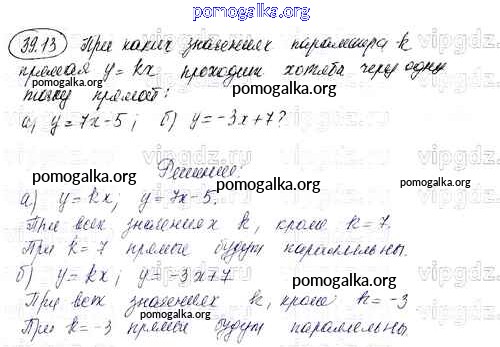 pomogalka.org
39.13 При каких значениях параметра k
прямая y = kx проходит хотя бы через одну
точку прямой:
а) y = 7x - 5; б) y = -3x + 7?
pomogalka.org
Решение:
pomogalka.org
а) y = kx; y = 7x - 5.
При всех значениях k, кроме k = 7.
pomogalka.org
При k = 7 прямые будут параллельны.
б) y = kx; y = -3x + 7
pomogalka.org
При всех значениях k, кроме k = -3
При k = -3 прямые будут параллельны
pomogalka.org